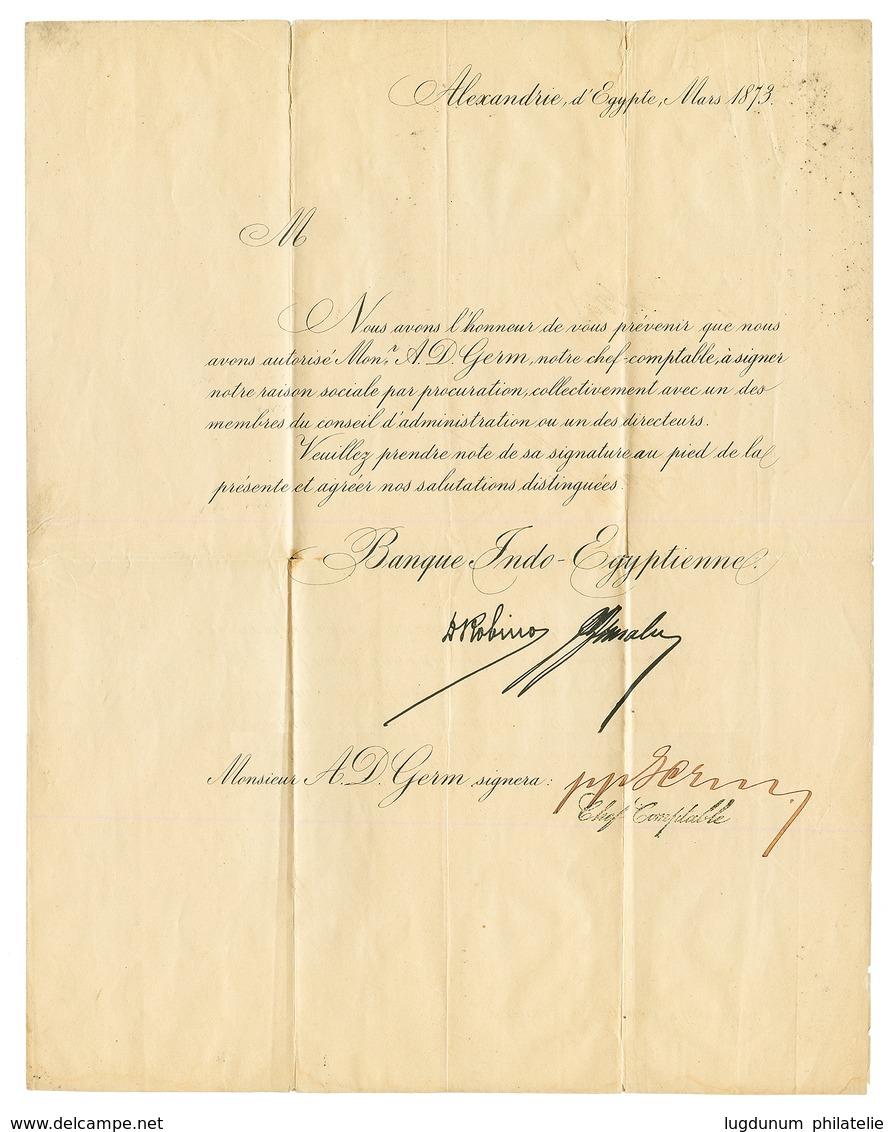 Alexandrie, d'Egypte, Mars 1873.
M
Nous avons l'honneur de vous prévenir que nous
avons autorisé Mon.r A. D. Germ, notre chef-comptable, à signer
notre raison sociale par procuration, collectivement avec un des
membres du conseil d'administration ou un des directeurs.
Veuillez prendre note de sa signature au pied de la
présente et agréer nos salutations distinguées.
Banque Indo-Egyptienne.
D Robino
Monsieur A. D. Germ signera: pp Germ
Chef Comptable
delcampe.net
lugdunum philatelie